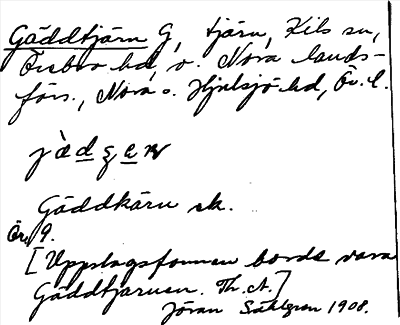 Gäddtjärn G, tjärn, Kils sn,
Örebro hd, o. Nora lands-
förs., Nora o. Hjulsjö hd, Ör. l.
Gäddkärn sk.
Ör. 9.
[Uppslagsformen borde vara
Gäddtjärnen. Th. A.]
Jöran Sahlgren 1908.